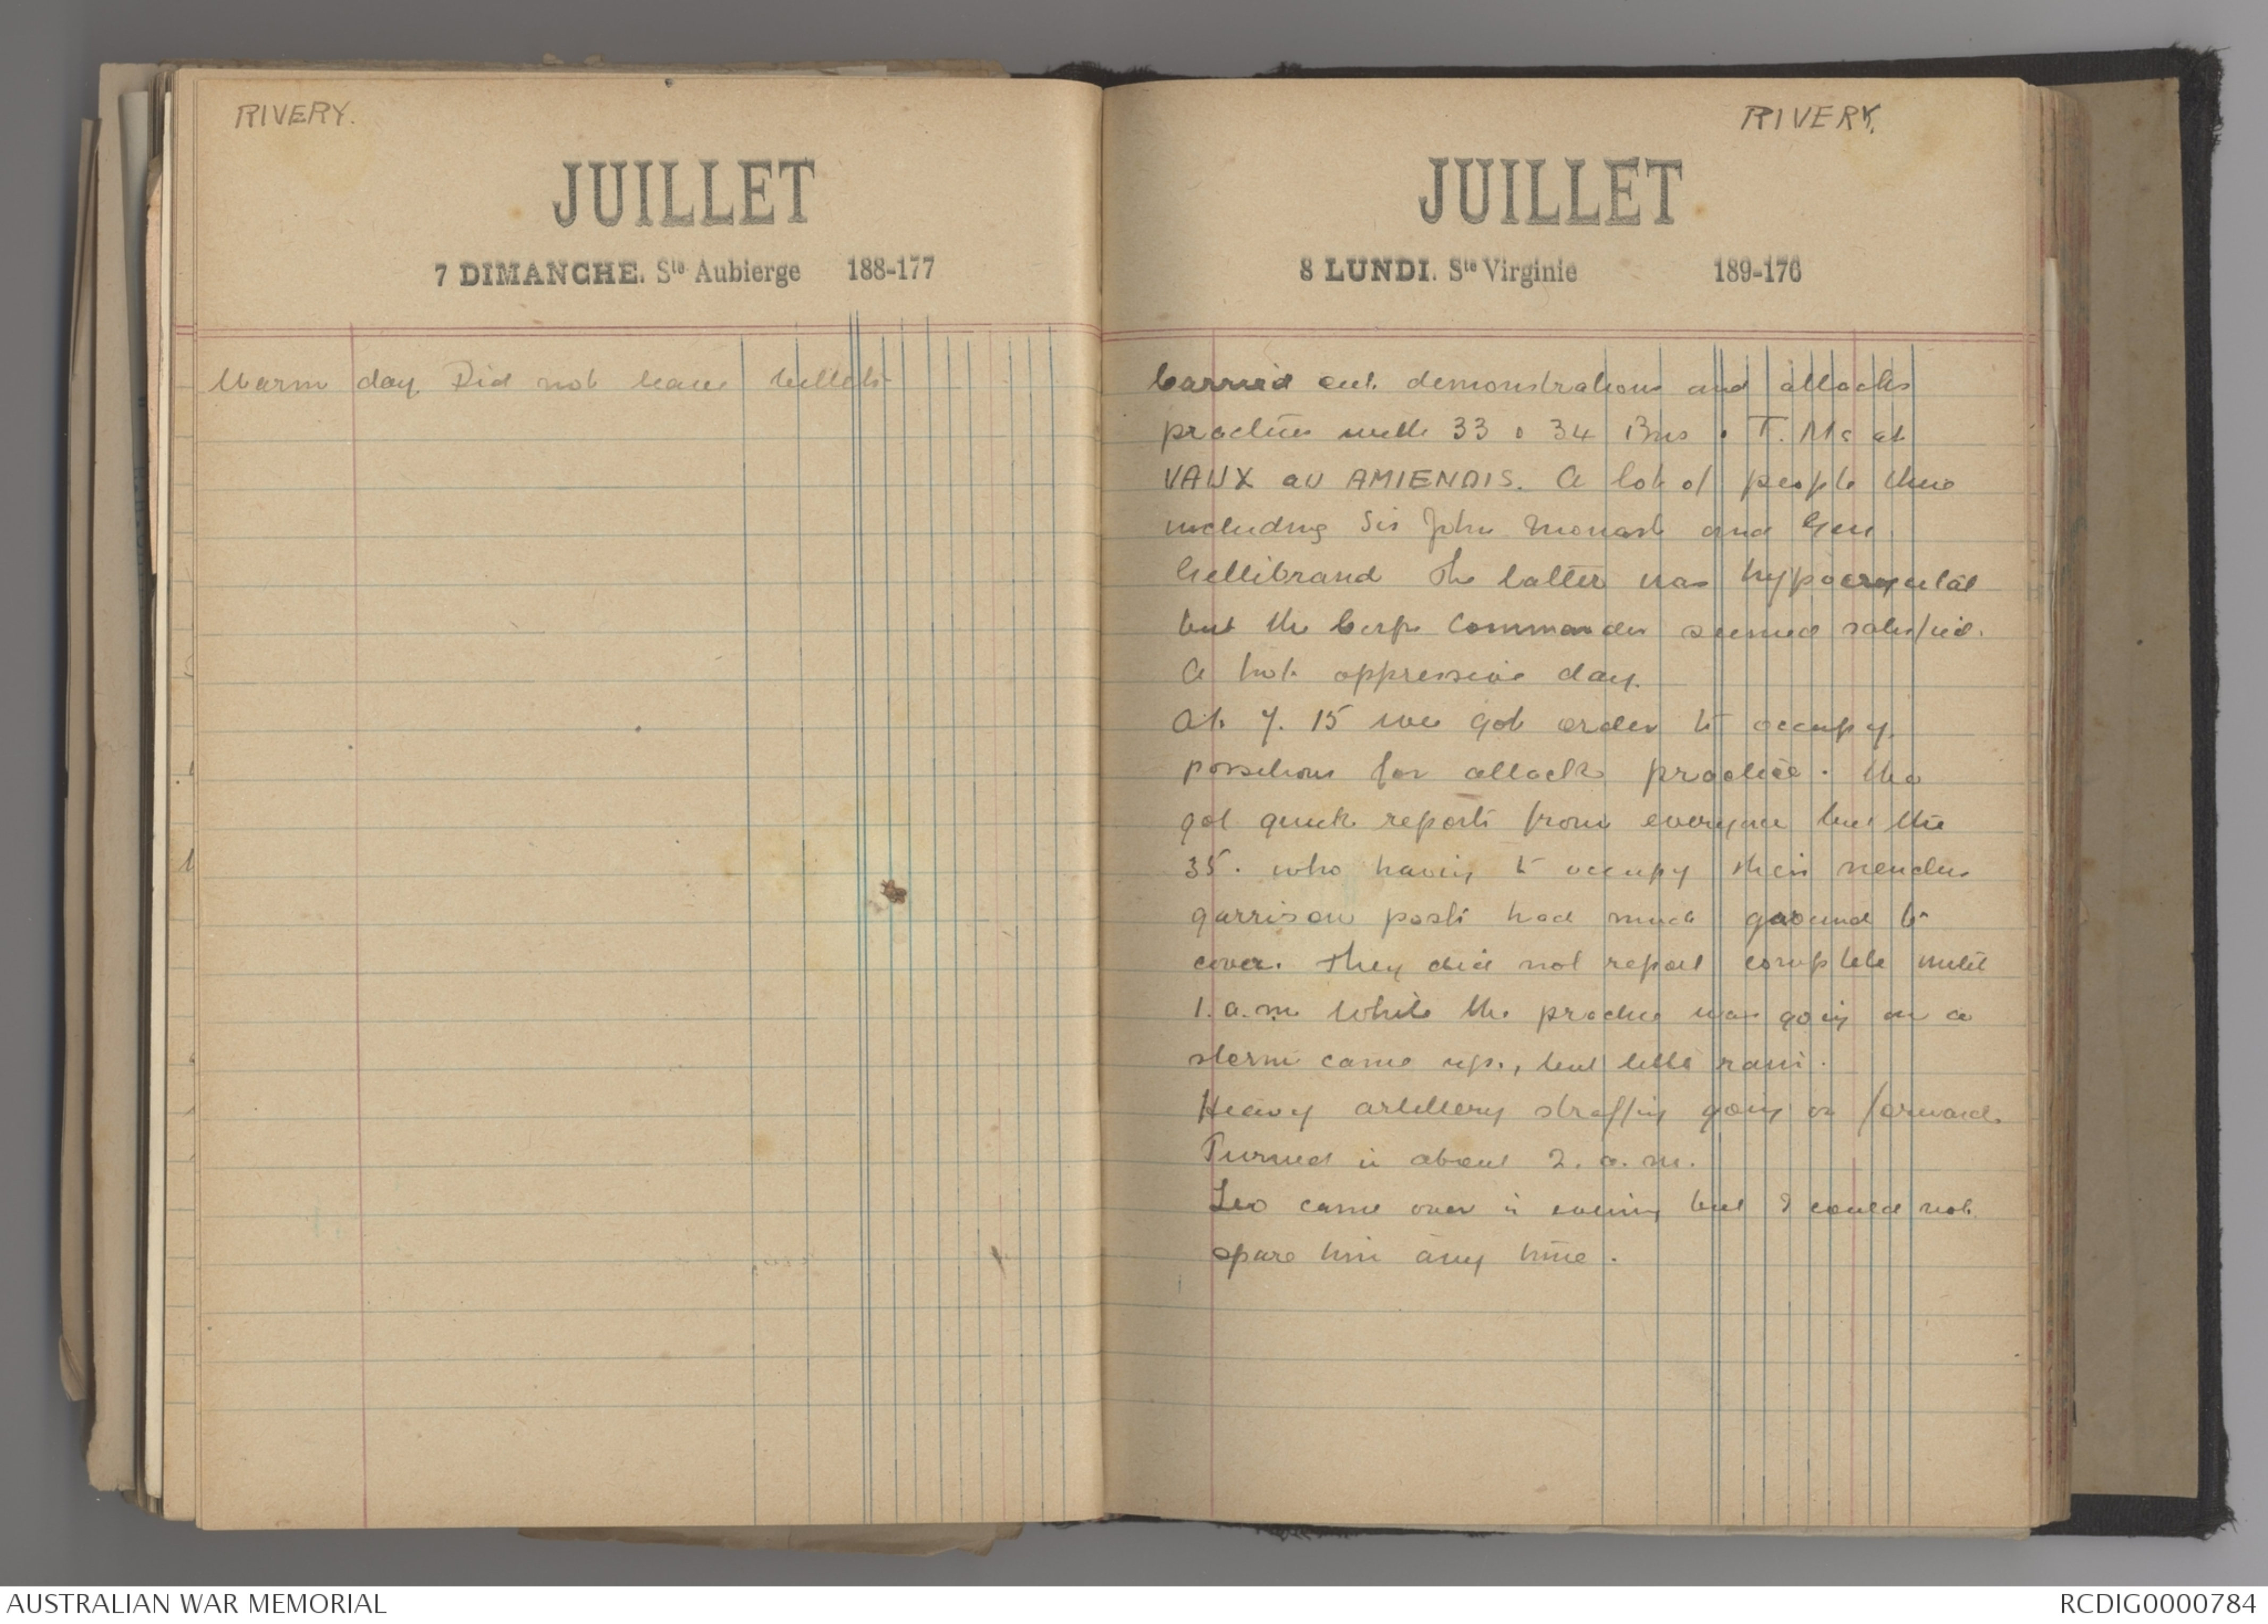 RIVERY.
JUILLET
7 DIMANCHE. Ste Aubierge 188-177
Warm day. Did not leave billets.
RIVERY.
JUILLET
8 LUNDI. Ste Virginie 189-176
Carried out demonstrations and attacks
practice with 33 & 34 Bns & T. Ms at
VAUX au AMIENOIS. A lot of people there
including Sir John Monash and Gen.
Gellibrand The latter was hypercritical
but the Corps Commander seemed satisfied.
A hot oppressive day.
At 7. 15 we got order to occupy
positions for attack practice. We
got quick reports from everyone but the
35. who having to occupy their
garrison posts had much ground to
cover. They did not report complete until
1. a.m. While the practice was going on a
storm came up, but little rain.
Heavy artillery straffing going on forward.
Turned in about 2. a.m.
Leo came over in evening but I could not
spare him any time.
AUSTRALIAN WAR MEMORIAL
RCDIG0000784